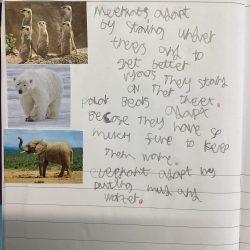 Meerkats adapt
by staning under
trees and to
get better
They stand
on their feet.
Polar Bears adapt
Becose they have so
much fure to keep
them worm.
eLephant adapt by
putting mud and
water.